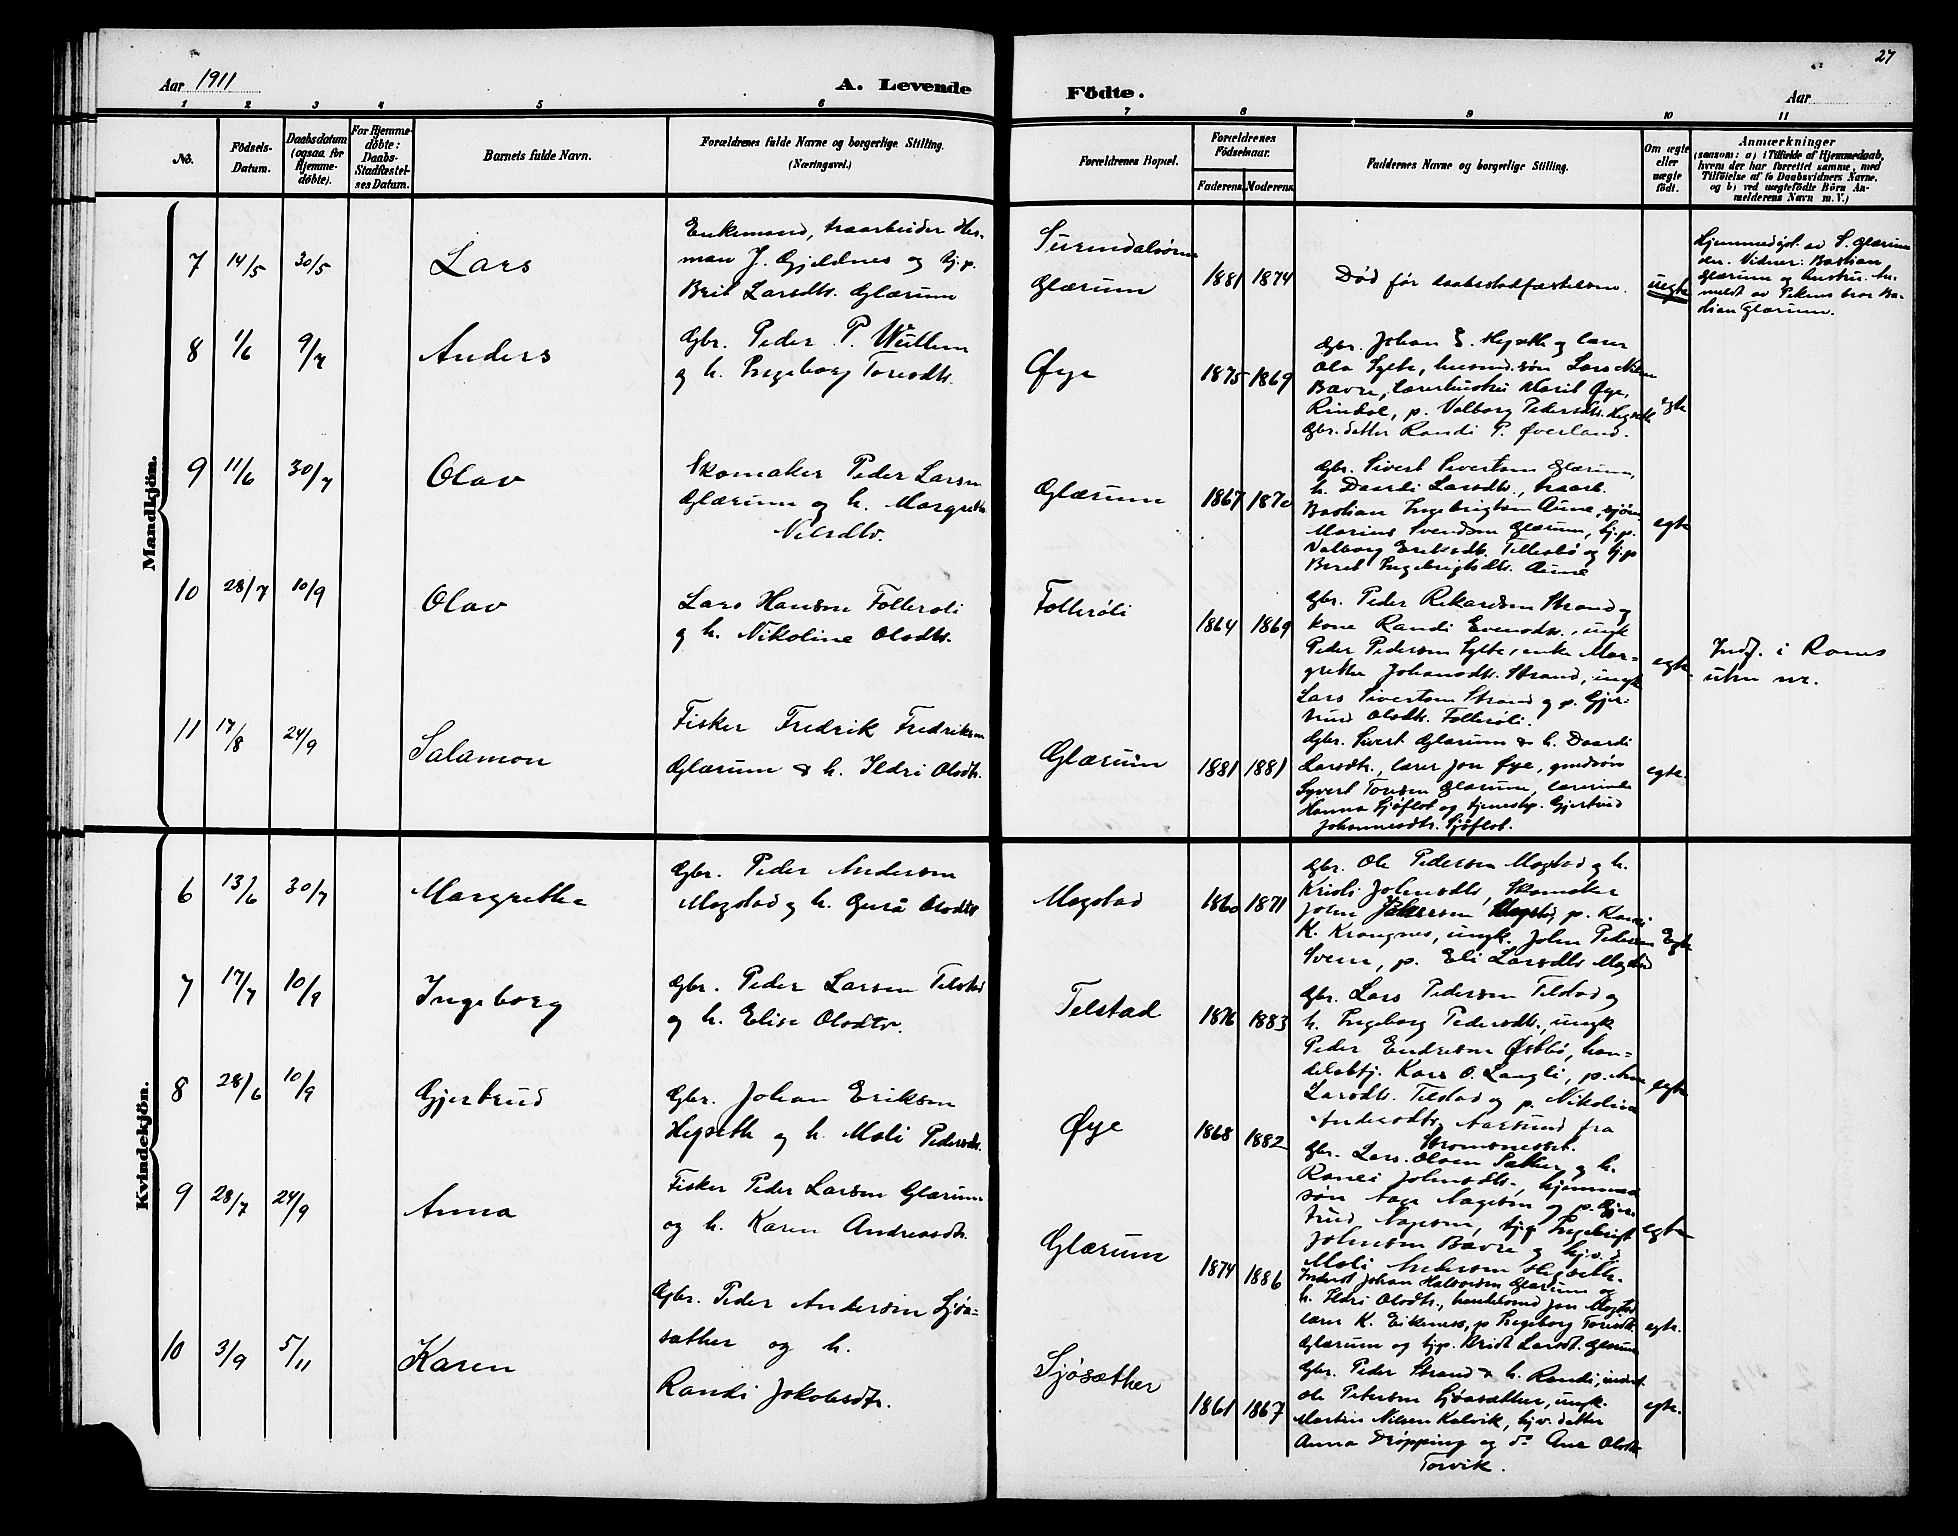 Aar 1911
A. Levende
Födte.
Aar
27
1 2 3 4 5 6 7 8 9 10 11
No.
Födsels-
Datum.
Daabsdatum
(ogsaa for
Hjemme-
døbte).
For Hjemme-
døbte:
Daabs-
Stadfæstel-
ses Datum.
Barnets fulde Navn.
Forældrenes fulde Navne og borgerlige Stilling.
(Næringsvei.)
Forældrenes Bopæl.
Forældrenes
Födselsaar.
Faderens.
Moderens.
Faddernes Navne og borgerlige Stilling.
Om ægte
eller
uægte
född.
Anmærkninger
(saasom: a) i Tilfælde af Hjemmedaab,
hvem der har forrettet samme, med
Tilföielse af to Daabsvidners Navne.
og b) ved uægtefödte Börn An-
melderens Navn m. V.)
Mandkjön.
7 14/5 30/5
Lars
Enkemand, traarbeider Her-
man J. Gjeldnes og tj.p.
Brit Larsdtr. Glærum
Surendalsøren
Glærum
1881 1874
Død før daabsstadfæstelsen.
uegte
Hjemmedøpt av S. Glærum
den. Vidner: Bastian
Glærum og hustru. An-
meldt av Pikens bror Ba-
stian Glærum.
8 1/6 9/7
Anders
Gbr. Peder P. Wullum
og h. Ingeborg Toresdtr.
Øye
1875 1869
Gbr. Johan E. Hegseth og lærer
Ola Sylte, husmd.søn Lars Nilsen
Bævre, lærerhustru Marit Øye,
Rindal, p. Valborg Pedersdtr. Hegseth
Gbr.datter Randi P. Øverland.
egte
9 11/6 30/7
Olav
Skomaker Peder Larsen
Glærum og h. Margrethe
Nilsdtr.
Glærum
1867 1870
Gbr. Sivert Sivertsen Glærum,
h. Daardi Larsdtr., traarb.
Bastian Ingebrigtsen Aune, sjøm.
Marius Svendsen Glærum, tj.p.
Valborg Eriksdtr. Tellesbø og tj.p
Beret Ingebrigtsdtr. Aune
egte
10 28/7 10/9
Olav
Lars Hansen Follerøli
og h. Nikoline Olsdtr.
Follerøli
1864 1869
Gbr. Peder Rikardsen Strand og
kone Randi Evensdtr., ungk
Peder Pedersen Sylte, enke Mar-
grethe Johansdtr. Strand, ungk
Lars Sivertsen Strand og p. Gjer-
trud Olsdtr. Follerøli.
egte.
Indf. i
uten nr.
11 17/8 24/9
Salamon
Fisker Fredrik Fredriksen
Glærum & h. Ildri Olsdtr.
Glærum
1881 1881
Gbr. Sivert Glærum & h. Daardi
Larsdtr., lærer Jon Øye, gmdsøn
Syvert Toresen Glærum, lærerinde
Hanna Sjøflot og tjenestp. Gjertrud
Johannesdtr. Sjøflot.
egte.
Kvindekjön.
6 13/6 30/7
Margrethe
Gbr. Peder Andersen
Mogstad og h. Guru Olsdtr
Mogstad
1860 1871
Gbr. Ole Pedersen Mogstad og h.
Kristi Johnsdtr, Skomaker
John p. Randi
K. Krangnes, ungk. John Pedersen
Svean, p. Eli Larsdtr Mogstad
Egte
7 17/7 10/9
Ingeborg
Gbr. Peder Larsen Telstad
og h. Elise Olsdtr.
Telstad
1876 1883
Gbr. Lars Pedersen Telstad og
h. Ingeborg Pedersdtr., ungk
Peder Endresen Østbø, han-
delsbtj. Kars O. Langli, p. Ane
Larsdtr. Telstad og p. Nikolina
Andersdtr. Aarsund fra
Stromsneset.
egte
8 28/6 10/9
Gjertrud
Gbr. Johan Eriksen
Hegseth og h. Mali Pedersdtr.
Øye
1868 1882
Gbr. Lars Olsen Sæther og h.
Randi Johnsdtr. hjemmev
søn Aage Aagesen og p. Gjer-
trud Aagesen, Ingebrigt
Johnsen Bævre og tj.p.
Mali Andersen Hegseth.
egte
9 28/7 24/9
Anna
Fisker Peder Larsen Glærum
og h. Karen Andreasdtr.
Glærum
1874 1886
Inderst Johan Halvorsen Glærum og
h. Ildri Olsdtr., handelsmd Jon Mogstad
lærer K. Eikenes, p Ingeborg Toresdtr.
Glærum og tj.p. Kristi Larsdt. Glærum
egte.
10 3/9 5/11
Karen
Gbr. Peder Andersen Sjøa-
sæther og h.
Randi Jakobsdtr.
Sjøsæther
1861 1867
Gbr. Peder Strand & h. Randi, inderst
Ole Petersen Sjøasæther, ungk.
Martin Nilsen Kalvik, hj.v. datter
Anna Drøpping og do Ane Olsdtr
Torvik.
egte.